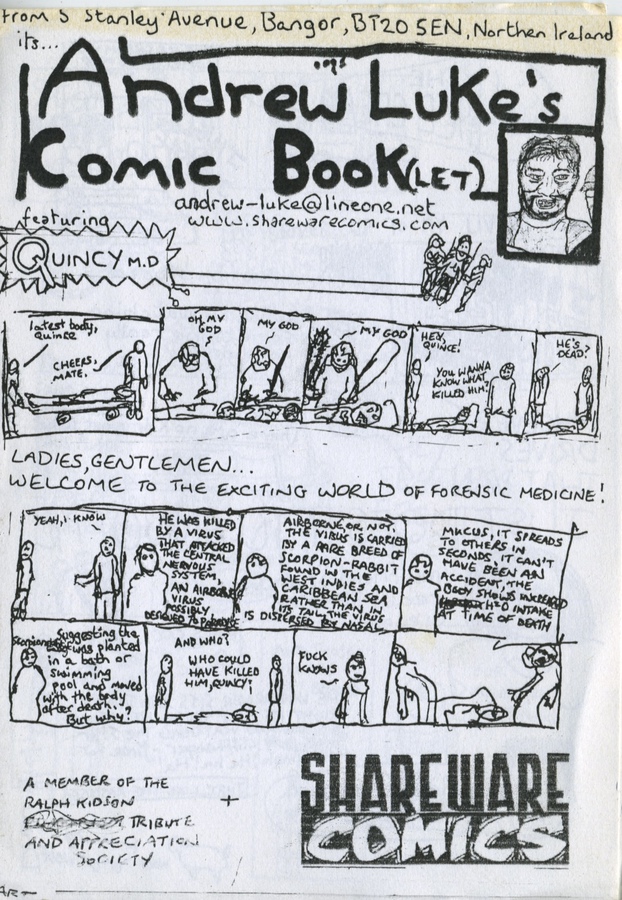 From 5 Stanley Avenue, Bangor, BT20 5EN, Northen Ireland
its...
Andrew Luke's
Comic Book (LET)
andrew-luke@lineone.net
www.sharewarecomics.com
featuring
QUINCY M.D
latest body,
Quince
CHEERS,
MATE.
OH MY
GOD
MY GOD
MY GOD
HEY,
QUINCE!
YOU WANNA
KNOW WHAT
KILLED HIM?
HE'S
DEAD?
LADIES, GENTLEMEN...
WELCOME TO THE EXCITING WORLD OF FORENSIC MEDICINE!
YEAH, I KNOW
HE WAS KILLED
BY A VIRUS
THAT ATTACKED
THE CENTRAL
NERVOUS
SYSTEM,
AN AIRBORNE
VIRUS
POSSIBLY
DESIGNED TO
AIRBORNE OR NOT,
THE VIRUS IS CARRIED
BY A RARE BREED OF
SCORPION-RABBIT
FOUND IN THE
WEST INDIES AND
CARIBBEAN SEA
RATHER THAN IN
ITS TAIL, THE VIRUS
IS DISPERSED BY NASAL
MUCUS, IT SPREADS
TO OTHERS IN
SECONDS. IT CAN'T
HAVE BEEN AN
ACCIDENT, THE
BODY SHOWS INCREASED
H2O INTAKE
AT TIME OF DEATH
Suggesting the
was planted
in a bath or
swimming
pool and moved
with the body
after death.
But why?
AND WHO?
WHO COULD
HAVE KILLED
HIM, QUINCY?
FUCK
KNOWS
A MEMBER OF THE
RALPH KIDSON
TRIBUTE
AND APPRECIATION
SOCIETY
+
SHAREWARE
COMICS